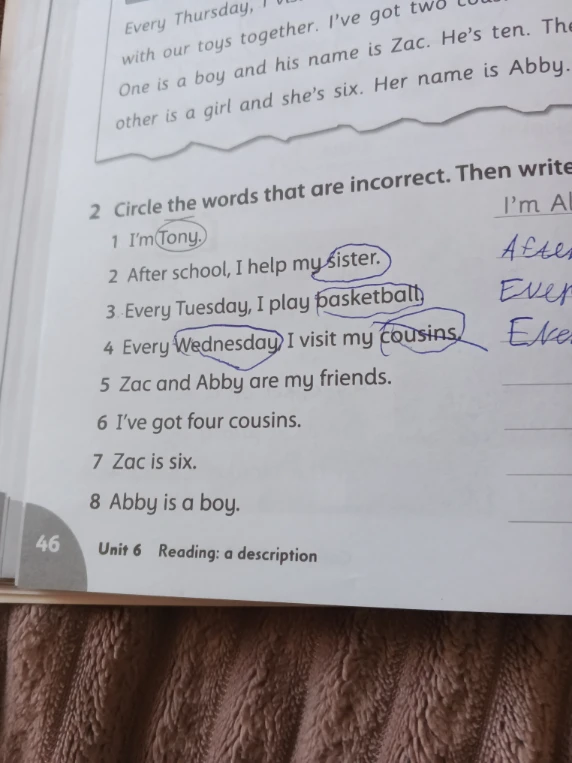 Every Thursday, I
with our toys together. I've got two
One is a boy and his name is Zac. He's ten. The
other is a girl and she's six. Her name is Abby.
2 Circle the words that are incorrect. Then write
1 I'm Tony. I'm Al
2 After school, I help my sister. After
3 Every Tuesday, I play basketball. Ever
4 Every Wednesday, I visit my cousins. Eve
5 Zac and Abby are my friends.
6 I've got four cousins.
7 Zac is six.
8 Abby is a boy.
46 Unit 6 Reading: a description